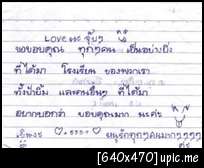 Love..... จุ๊บๆ
ขอขอบคุณ ทุกๆคน เป็นอย่างยิ่ง
ที่ได้มา โรงเรียน ของพวกเรา
ทั้งน้ายิ้ม และคนอื่นๆ ที่ได้มา
อยากบอกว่า ขอบคุณมาก นะค่ะ
รักทุกๆคนมากๆๆๆๆ
[640x470] upic.me